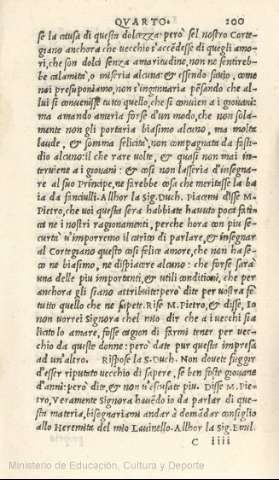 QVARTO. 100
se la causa di questa dolcezza: però se'l nostro Corte-
giano anchora che vecchio s'accédesse di quegli amo-
ri, che son dolci senza amaritudine, non ne sentireb-
be calamità, o miseria alcuna: & essendo savio, come
noi presuponiamo, non s'ingannaria pēsando che al-
lui si convenisse tutto quello, che si convien a i giovani:
ma amando ameria forse d'un modo, che non sola-
mente non gli portaria biasimo alcuno, ma molta
laude, & somma felicità, non compagnata da fasti-
dio alcuno: il che rare volte, & quasi non mai in-
terviene a i giovani: & così non lasseria d'insegna-
re al suo Principe, ne firebbe cosa che meritasse la ba
ia da fanciulli. Allhor la Sig. Duch. Piacemi disse M.
Pietro, che voi questa sera habbiate havuto poca fatica
ca ne i nostri ragionamenti, perche hora con piu se-
curtà u'imporremo il carico di parlare, & insegnar
al Cortegiano questo così felice amore, che non ha se-
co ne biasimo, ne dispiacere alcuno: che forse sarà
una delle piu importanti, & utili conditioni, che per
anchora gli siano attribuite: però dite per vostra fe
tutto quello che ne sapete. Rise M. Pietro, & disse, Io
non vorrei Signora che'l mio dir che a i vecchi sia
licito lo amare, fosse cagion di farmi tener per vec-
chio da queste donne: però date pur questa impresa
ad un'altro. Rispose la S. Duch. Non dovete fuggir
d'esser riputato vecchio di sapere, se ben foste giovane
d'anni: però dite, & non v'escusate piu. Disse M. Pie-
tro, Veramente Signora havēdo io da parlar di que-
sta materia, bisognariami andar à domādar consiglio
allo Heremita del mio Lavinello. Allhor la Sig. Emil.
C iiii
Ministerio de Educación, Cultura y Deporte